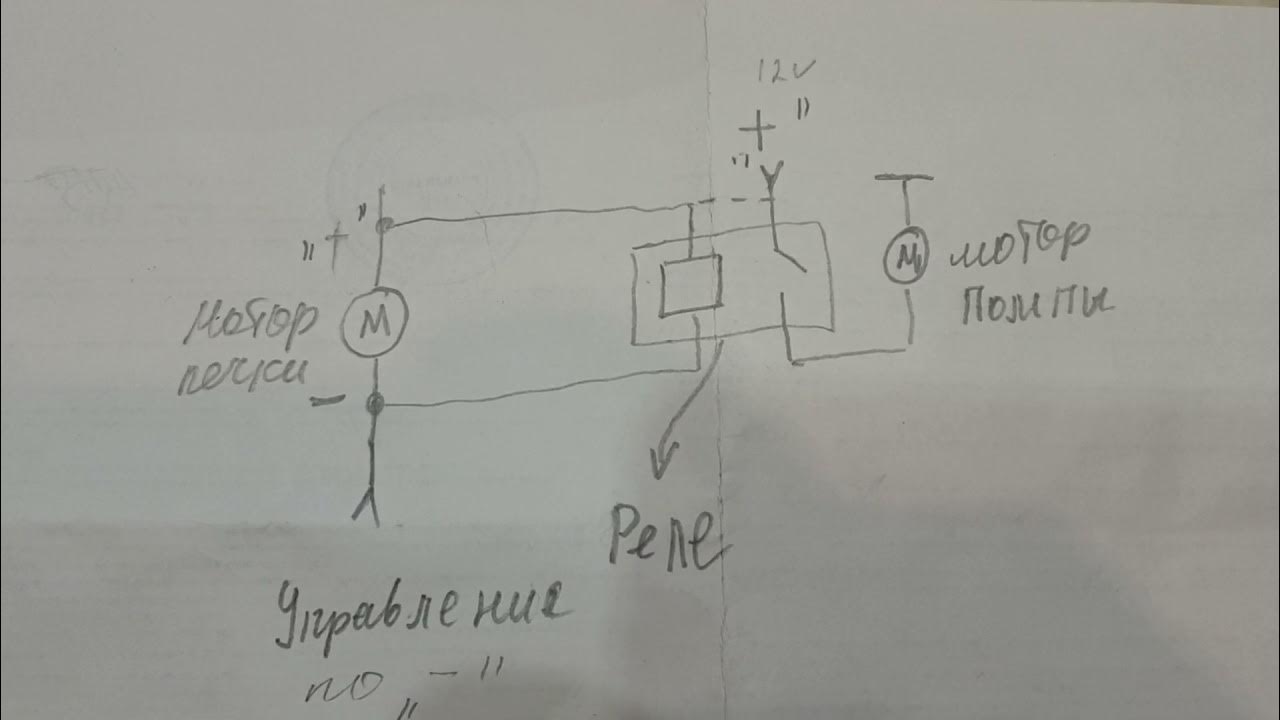 12v
"+"
"+"
М
Мотор
печки
−
М
мотор
помпы
Реле
Управление
по „−"